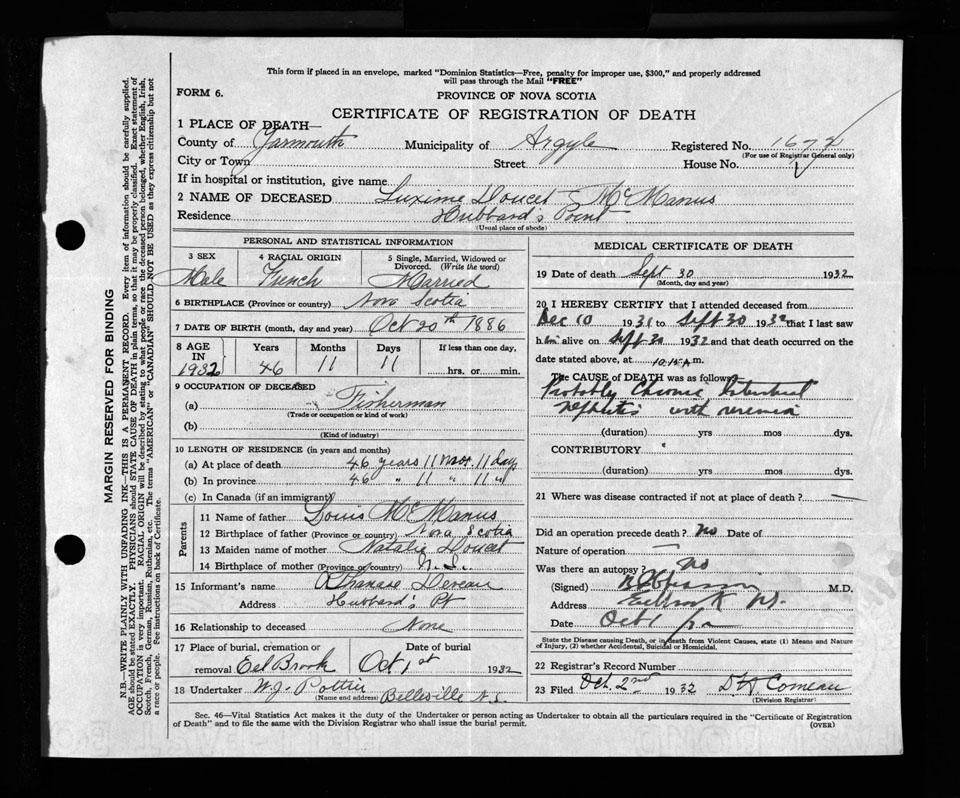 This form if placed in an envelope, marked "Dominion Statistics—Free, penalty for improper use, $300," and properly addressed
will pass through the Mail "FREE"
FORM 6.
PROVINCE OF NOVA SCOTIA
CERTIFICATE OF REGISTRATION OF DEATH
1 PLACE OF DEATH—
County of Yarmouth Municipality of Argyle Registered No. 1677
(For use of Registrar General only)
City or Town Street House No.
If in hospital or institution, give name
2 NAME OF DECEASED Luxime Doucet McManus
Residence Hubbard's Point
(Usual place of abode)
PERSONAL AND STATISTICAL INFORMATION
3 SEX 4 RACIAL ORIGIN 5 Single, Married, Widowed or Divorced. (Write the word)
Male French Married
6 BIRTHPLACE (Province or country) Nova Scotia
7 DATE OF BIRTH (month, day and year) Oct 20th 1886
8 AGE IN 1932 Years 46 Months 11 Days 11 If less than one day, hrs. or min.
9 OCCUPATION OF DECEASED
(a) Fisherman
(Trade or occupation or kind of work)
(b)
(Kind of industry)
10 LENGTH OF RESIDENCE (in years and months)
(a) At place of death 46 years 11 mos. 11 days
(b) In province 46 " 11 " 11 "
(c) In Canada (if an immigrant)
Parents
11 Name of father Louis McManus
12 Birthplace of father (Province or country) Nova Scotia
13 Maiden name of mother Natalie Doucet
14 Birthplace of mother (Province or country) N.S.
15 Informant's name Athanase Deveau
Address Hubbard's Pt
16 Relationship to deceased None
17 Place of burial, cremation or removal Eel Brook Date of burial Oct 1st 1932
18 Undertaker W.J. Pottier Belleville N.S.
(Name and address)
MEDICAL CERTIFICATE OF DEATH
19 Date of death Sept 30 1932
(Month, day and year)
20 I HEREBY CERTIFY that I attended deceased from
Dec 10 1931 to Sept 30 1932 that I last saw
him alive on Sept 30 1932 and that death occurred on the
date stated above, at 10.15 A m.
The CAUSE of DEATH was as follows:
Probably Chronic Interstitial
nephritis with uremia
(duration) yrs mos dys.
CONTRIBUTORY
(duration) yrs mos dys.
21 Where was disease contracted if not at place of death? —
Did an operation precede death? no Date of
Nature of operation —
Was there an autopsy? no
(Signed) M.D.
Address Eelbrook NS.
Date Oct 1/32
State the Disease causing Death, or in death from Violent Causes, state (1) Means and Nature
of Injury, (2) whether Accidental, Suicidal or Homicidal.
22 Registrar's Record Number
23 Filed Oct. 2nd 1932 Comeau
(Division Registrar)
Sec. 46—Vital Statistics Act makes it the duty of the Undertaker or person acting as Undertaker to obtain all the particulars required in the "Certificate of Registration
of Death" and to file the same with the Division Registrar who shall issue the burial permit.
(OVER)
MARGIN RESERVED FOR BINDING
N.B.—WRITE PLAINLY WITH UNFADING INK—THIS IS A PERMANENT RECORD. Every item of information should be carefully supplied.
AGE should be stated EXACTLY. PHYSICIANS should STATE CAUSE OF DEATH in plain terms, so that it may be properly classified. Exact statement of
OCCUPATION is very important. RACIAL ORIGIN will be described by stating to what people or race the deceased person belonged, whether English, Irish,
Scotch, French, German, Russian, Ruthenian, etc. The terms "AMERICAN" or "CANADIAN" SHOULD NOT BE USED as they express citizenship but not
a race or people. Fee instructions on back of Certificate.